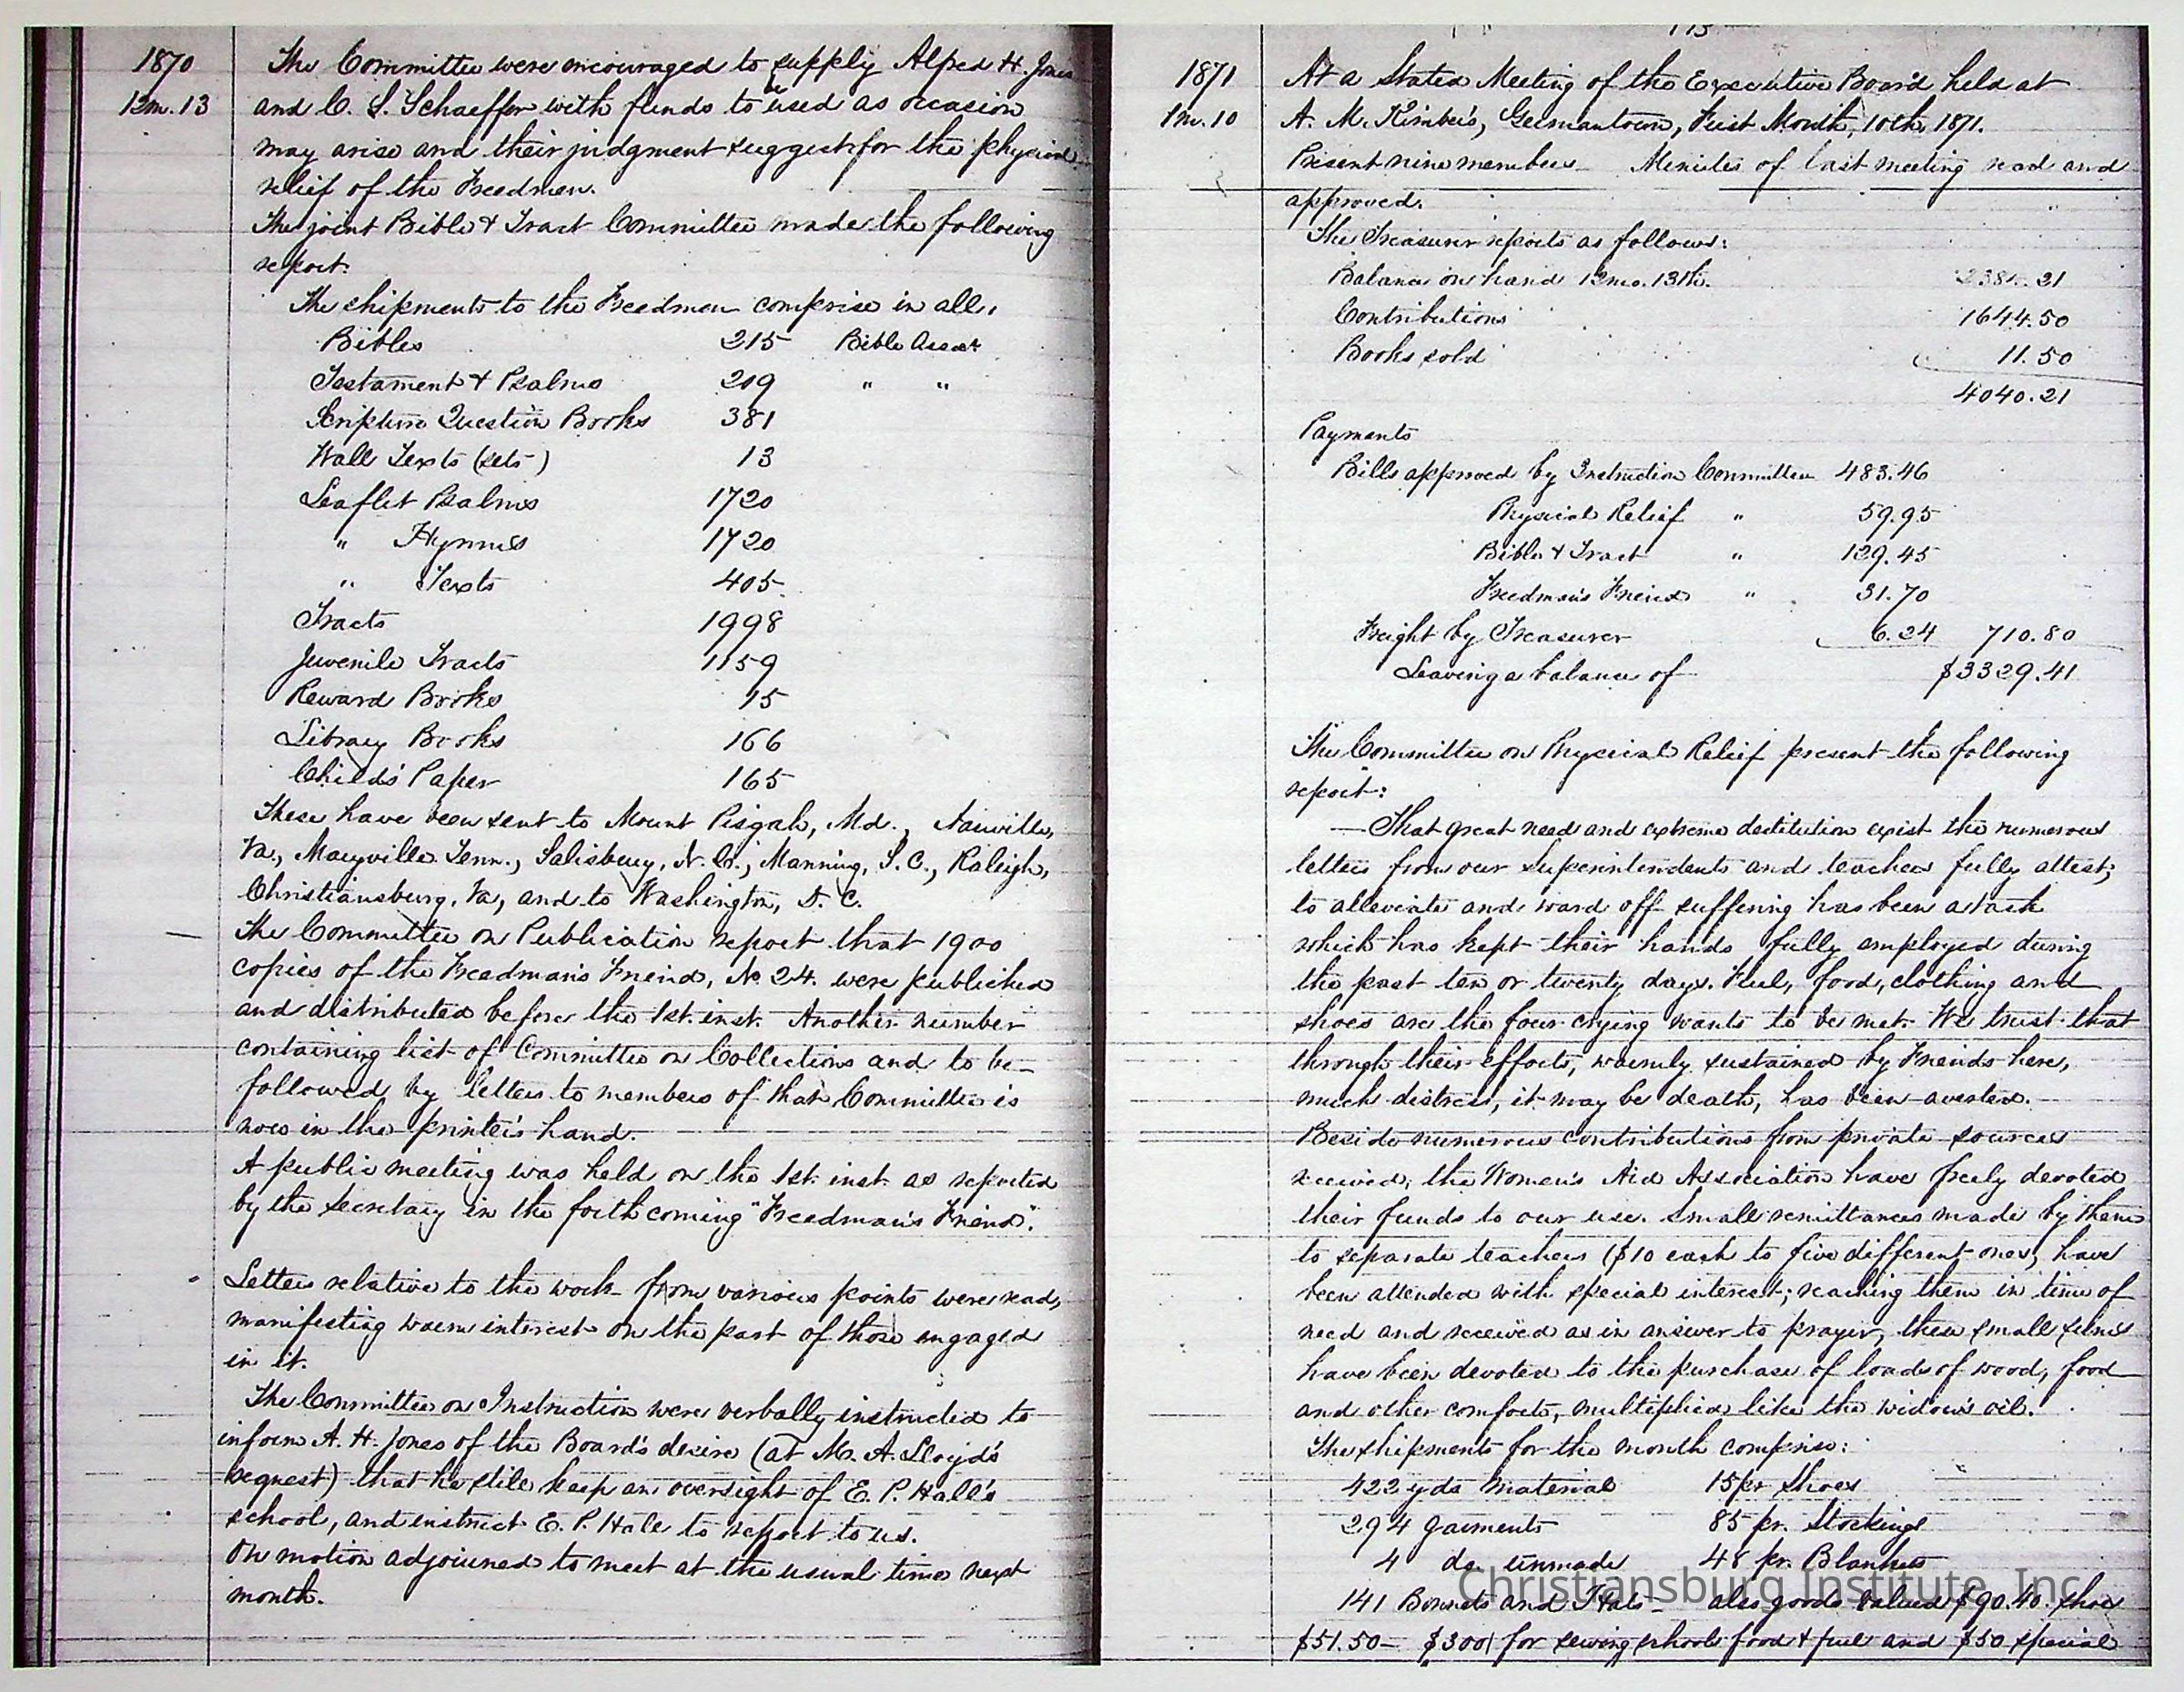 1870
12m.13
The Committee were encouraged to supply Alfred H. Jones
and C. S. Schaeffer with funds to be used as occasion
may arise and their judgment suggest for the physical
relief of the Freedmen.
The joint Bible & Tract Committee made the following
report.
The shipments to the Freedmen comprise in all,
Bibles 215 Bible Assoct
Testament & Psalms 209 " "
Scripture Question Books 381
Wall Texts (sets) 13
Leaflet Psalms 1720
" Hymns 1720
" Texts 405
Tracts 1998
Juvenile Tracts 1159
Reward Books 15
Library Books 166
Child's Paper 165
These have been sent to Mount Pisgah, Md.,
Va., Maryville Tenn., Salisbury, N. Ca., Manning, S. C., Raleigh,
Christiansburg, Va, and to Washington, D. C.
The Committee on Publication report that 1900
copies of the Freedman's Friend, No 24. were published
and distributed before the 1st. inst. Another number
containing list of Committee on Collections and to be
followed by letters to members of that Committee is
now in the printer's hand.
A public meeting was held on the 1st. inst. as reported
by the Secretary in the forthcoming "Freedman's Friend".
Letters relative to the work from various points were read,
manifesting warm interest on the part of those engaged
in it.
The Committee on Instruction were verbally instructed to
inform A. H. Jones of the Board's desire (at M. A. Lloyd's
request) that he still keep an oversight of E. P. Hall's
school, and instruct E. P. Hall to report to us.
On motion adjourned to meet at the usual time next
month.
113
1871
1m.10
At a Stated Meeting of the Executive Board held at
A. M. Kimber's, Germantown, First Month, 10th, 1871.
Present nine members_ Minutes of last meeting read and
approved.
The Treasurer reports as follows:
Balance on hand 12mo.13th. 2384.21
Contributions 1644.50
Books sold 11.50
4040.21
Payments
Bills approved by Instruction Committee 483.46
Physical Relief " 59.95
Bible & Tract " 129.45
Freedman's Friend " 31.70
Freight by Treasurer 6.24 710.80
Leaving a balance of $3329.41
The Committee on Physical Relief present the following
report:
—That great need and extreme destitution exist the numerous
letters from our Superintendents and teachers fully attest;
to alleviate and ward off suffering has been a task
which has kept their hands fully employed during
the past ten or twenty days. Fuel, food, clothing and
shoes are the four crying wants to be met. We trust that
through their efforts, warmly sustained by Friends here,
much distress, it may be death, has been averted.
Beside numerous contributions from private sources
received, the Women's Aid Association have freely devoted
their funds to our use. Small remittances made by them
to separate teachers ($10 each to five different ones, have
been attended with special interest; reaching them in time of
need and received as in answer to prayer, these small sums
have been devoted to the purchase of loads of wood, food
and other comforts, multiplied like the widow's oil.
The shipments for the month comprise:
422 yds material 15 pr shoes
294 Garments 85 pr. Stockings
4 do unmade 48 pr. Blankets
141 Bonnets and Hats_ also goods valued $90.40. shoes
$51.50— $300 for sewing schools food & fuel and $50 special
Christiansburg Institute, Inc.